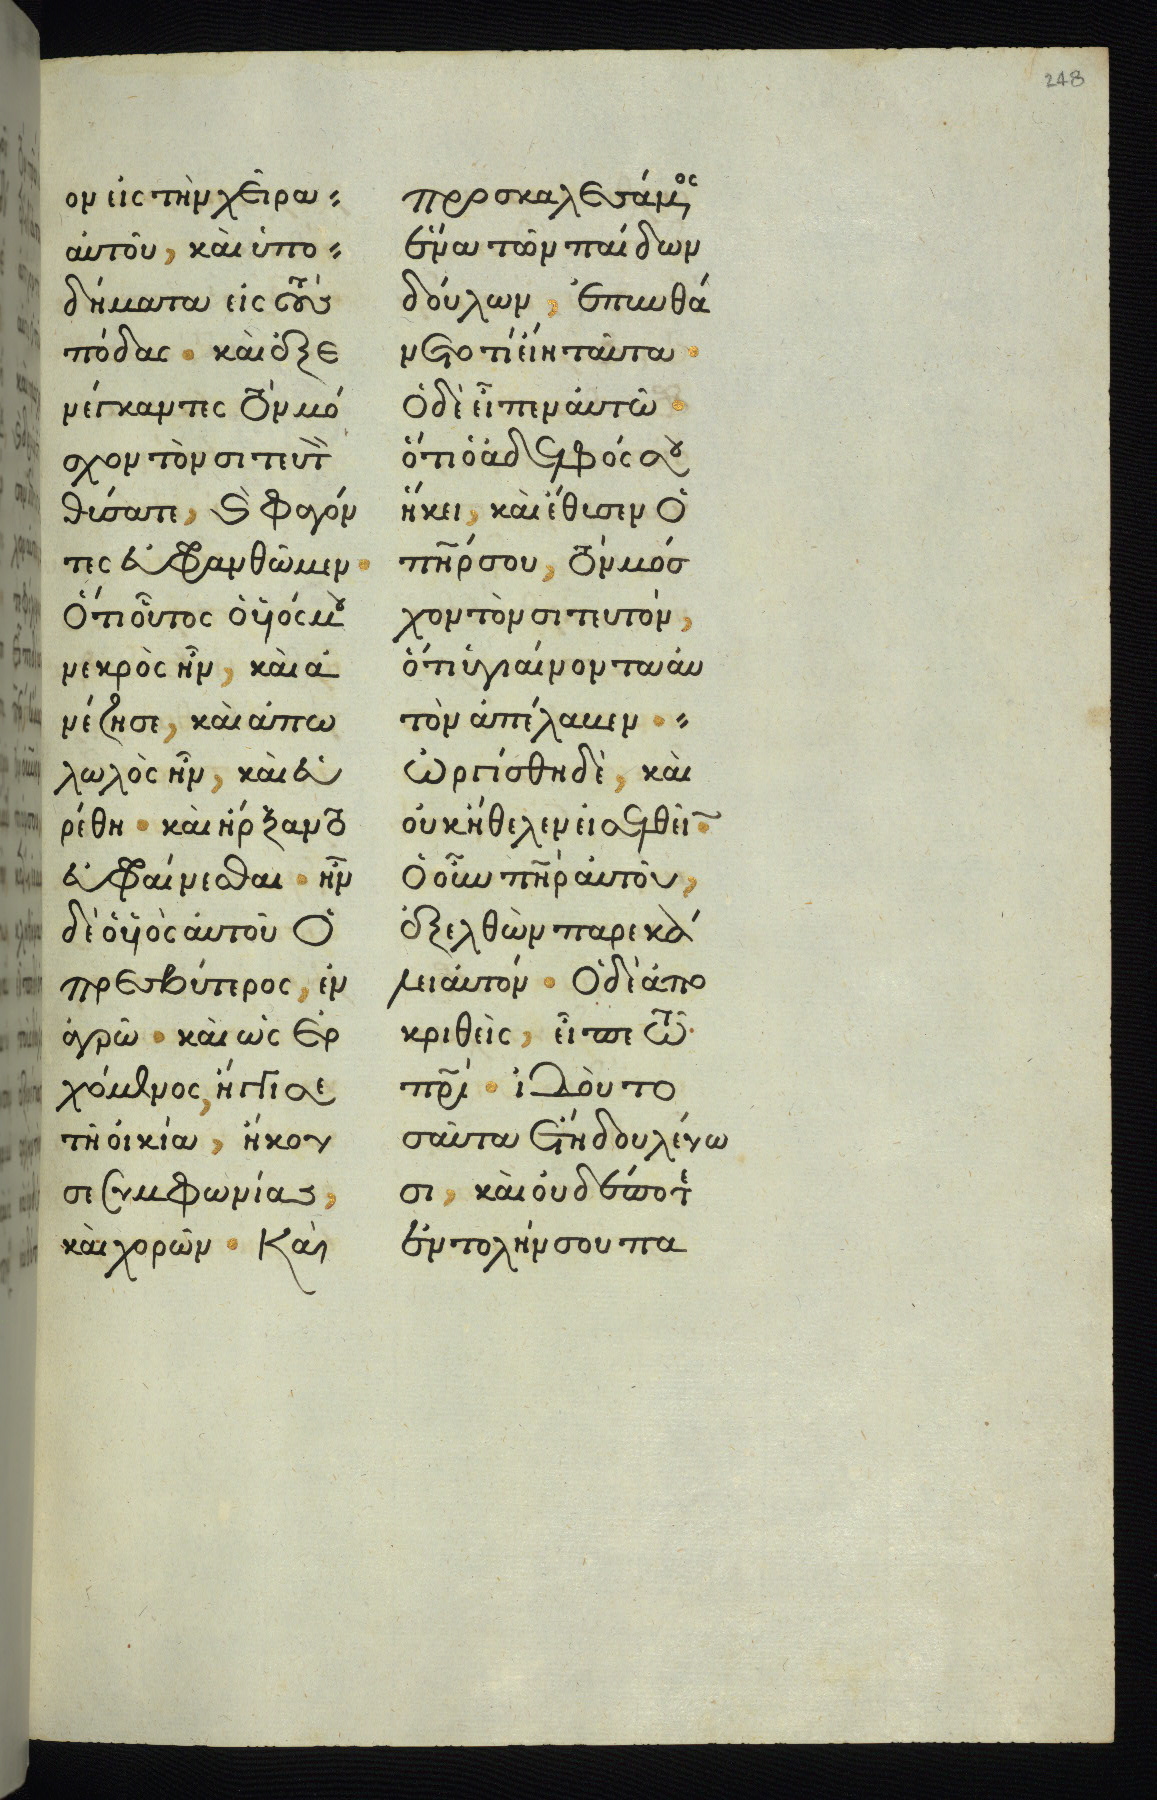 248
ον εἰς τὴν χεῖρα
αὐτοῦ, καὶ ὑπο
δήματα εἰς τοὺς
πόδας · καὶ ἐξε
νέγκαντες τὸν μό
σχον τὸν σιτευτ
θύσατε, καὶ φαγόν
τες εὐφρανθῶμεν ·
Ὅτι οὗτος ὁ υἱός μου
νεκρὸς ἦν, καὶ ἀ
νέζησε, καὶ ἀπο
λωλὸς ἦν, καὶ εὑ
ρέθη · καὶ ἤρξαντο
εὐφραίνεσθαι · ἦν
δὲ ὁ υἱὸς αὐτοῦ Ὁ
πρεσβύτερος, ἐν
ἀγρῷ · καὶ ὡς ἐρ
χόμενος, ἤγγισε
τῇ οἰκίᾳ, ἤκου
σε συμφωνίας,
καὶ χορῶν · Καὶ
προσκαλεσάμενος
ἕνα τῶν παίδων
δούλων, ἐπυνθά
νετο τί εἴη ταῦτα ·
Ὁ δὲ εἶπεν αὐτῷ ·
ὅτι ὁ ἀδελφός σου
ἥκει, καὶ ἔθυσεν Ὁ
πῆρ σου, τὸν μόσ
χον τὸν σιτευτόν,
ὅτι ὑγιαίνοντα αὐ
τὸν ἀπέλαβεν ·
Ὠργίσθη δὲ, καὶ
οὐκ ἤθελεν εἰσελθεῖν ·
Ὁ οὖν πῆρ αὐτοῦ,
ἐξελθὼν παρεκά
λει αὐτόν · Ὁ δὲ ἀπο
κριθεὶς, εἶπε τῷ
πρί · ἰδοὺ το
σαῦτα ἔτη δουλεύω
σοι, καὶ οὐδέποτε
ἐντολήν σου πα